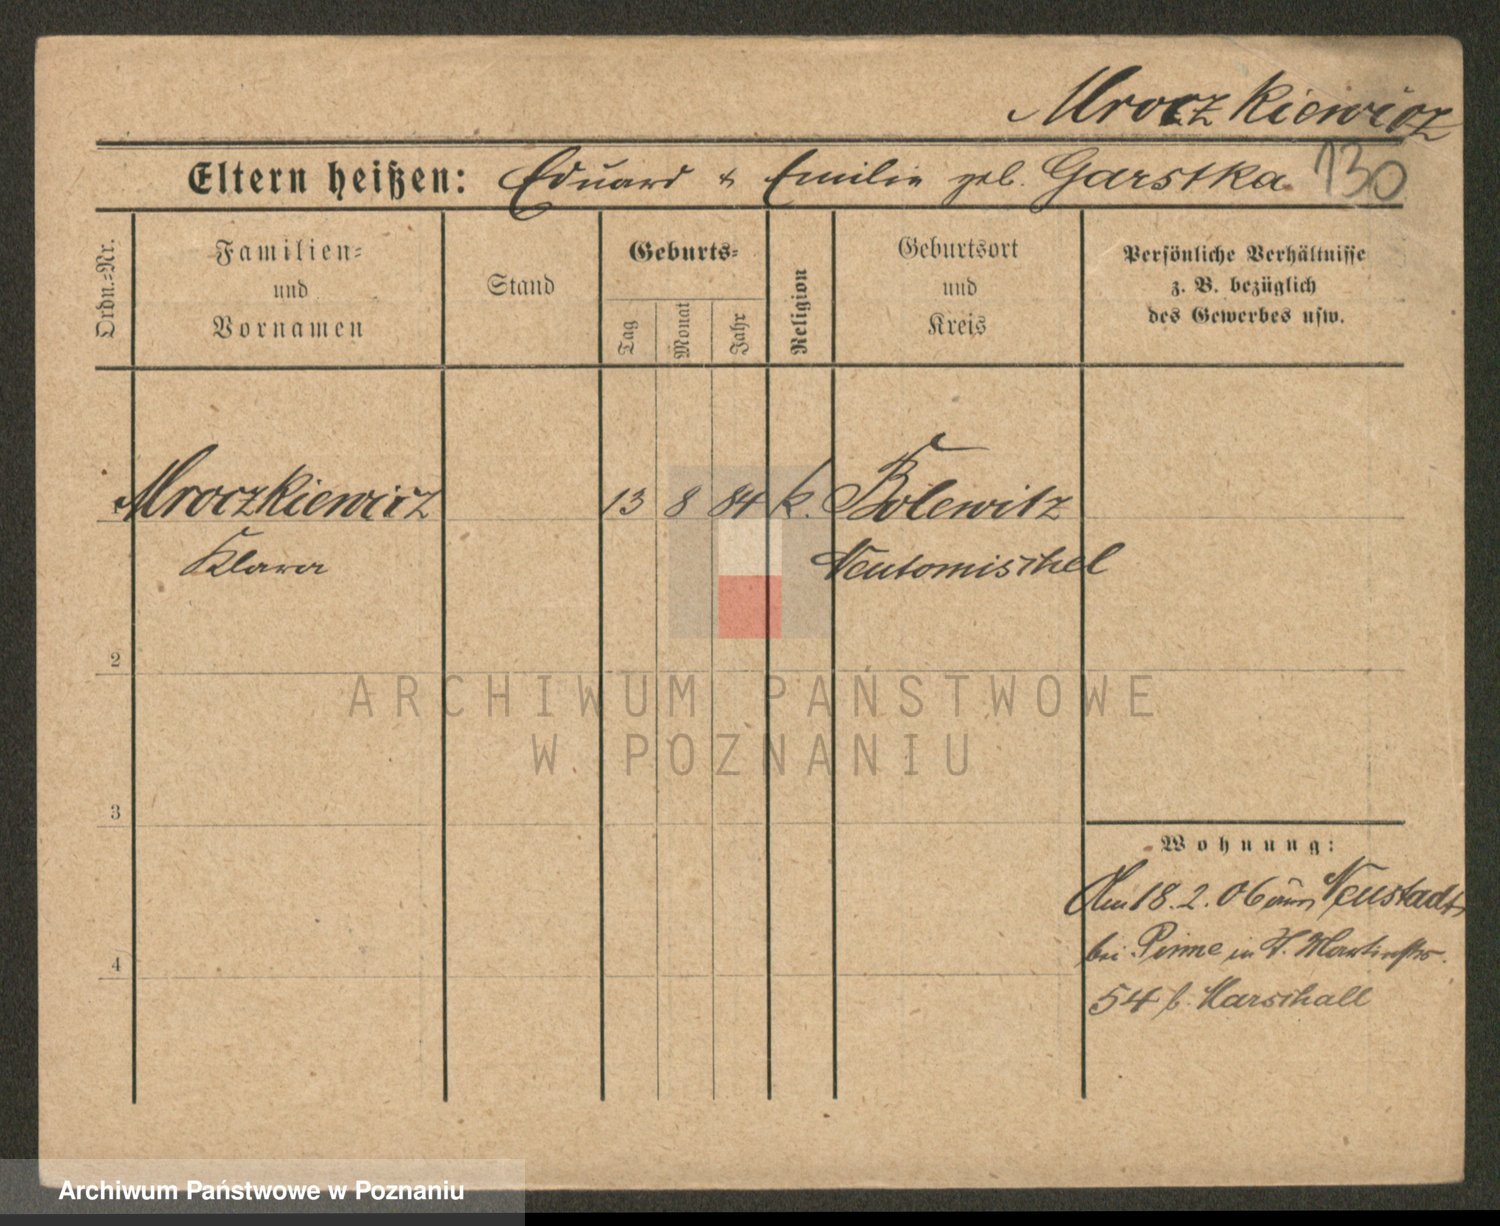 Mroczkiewicz
Eltern heißen: Eduard & Emilie geb. Garstka 130
Ordn.=Nr.
Familien=
und
Vornamen
Stand
Geburts=
Tag
Monat
Jahr
Religion
Geburtsort
und
Kreis
Persönliche Verhältnisse
z. B. bezüglich
des Gewerbes usw.
Mroczkiewicz 13 8 84 k. Bolewitz
Klara Neutomischel
2
3
4
Wohnung:
Am 18. 2. 06 aus Neustadt
bei Pinne in St. Martinstr.
54 b. Marschall
ARCHIWUM PAŃSTWOWE
W POZNANIU
Archiwum Państwowe w Poznaniu